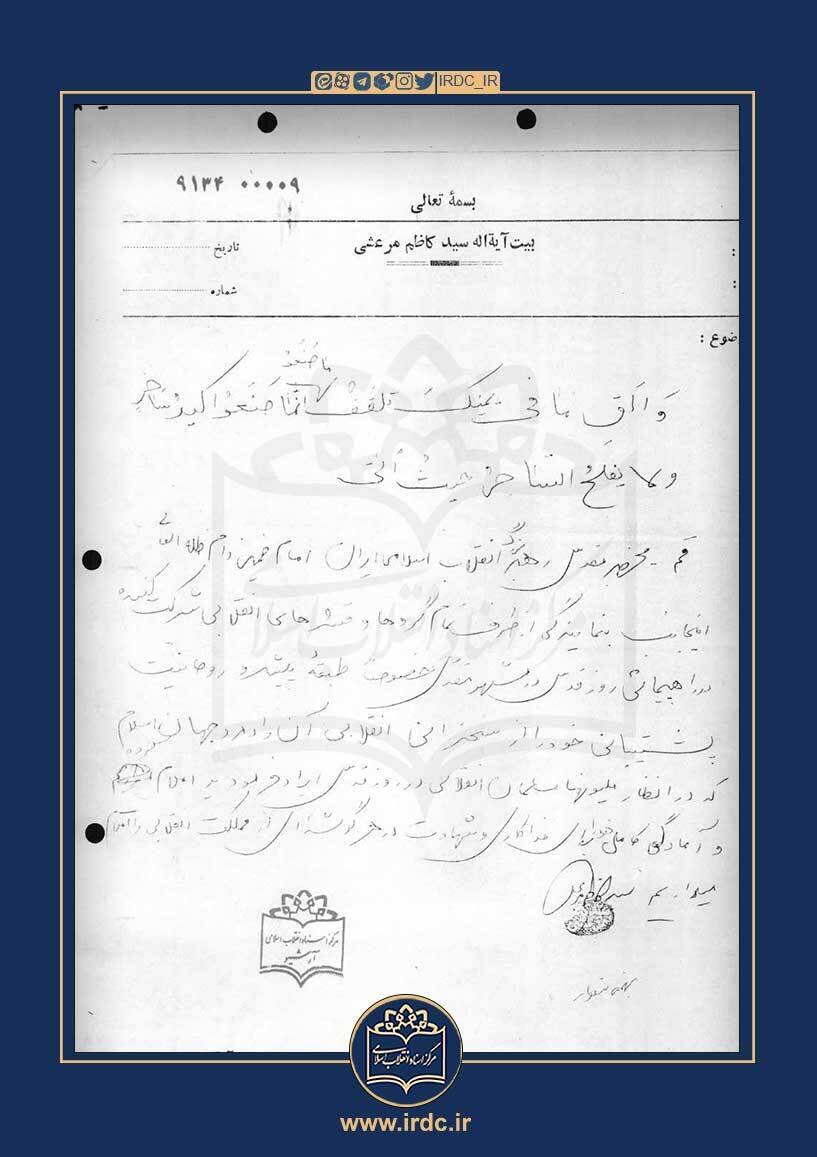 IRDC_IR
۹۱۳۴ ۰۰۰۰۹
بسمهٔ تعالی
بیت آیة اله سید کاظم مرعشی
تاریخ
شماره
ضوع :
ما صَنَعُو
وَ اَلقِ ما فی یمینکَ تلقفْ انَّما صَنَعوُا کیدُ ساحِرٍ
ولا یفلحُ السّاحِرُ حیثُ اَتی
قم - محضر مقدس رهبر بزرگ انقلاب اسلامی ایران امام خمینی دام ظله العالی
اینجانب بنمایندگی از طرف تمام گروها و قشرهای انقلابی شرکت کننده
در راهپیمائی روز قدس در مشهد مقدس خصوصاً طبقهٔ پیشرو روحانیت
پشتیبانی خود را از سخنرانی انقلابی آن زادمرد جهان اسلام
که در انظار ملیونها مسلمان انقلابی در روز قدس ایراد فرمودید اعلام کرده
و آمادگی کامل خود برای فداکاری و شهادت در هر گوشه‌ای از مملکت انقلابی را اعلام
میداریم سید کاظم مرعشی
مرکز اسناد انقلاب اسلامی
آرشیو
مرکز اسناد انقلاب اسلامی
www.irdc.ir